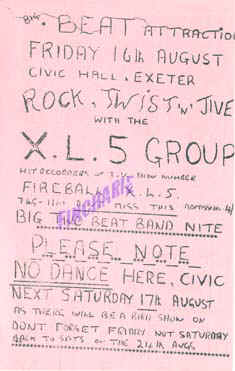 BIG BEAT ATTRACTION
FRIDAY 16th AUGUST
CIVIC HALL, EXETER
ROCK, TWIST 'N' JIVE
WITH THE
X.L.5 GROUP
HIT RECORDERS OF T.V. SHOW NUMBER
FIREBALL X.L.5.
MISS THIS ADMISSION 4/
BIG TWO BEAT BAND NITE
PLEASE NOTE
NO DANCE HERE, CIVIC
NEXT SATURDAY 17th AUGUST
AS THERE WILL BE A BIRD SHOW ON
DONT FORGET FRIDAY NOT SATURDAY
BACK TO SATS ON THE 24th AUGS